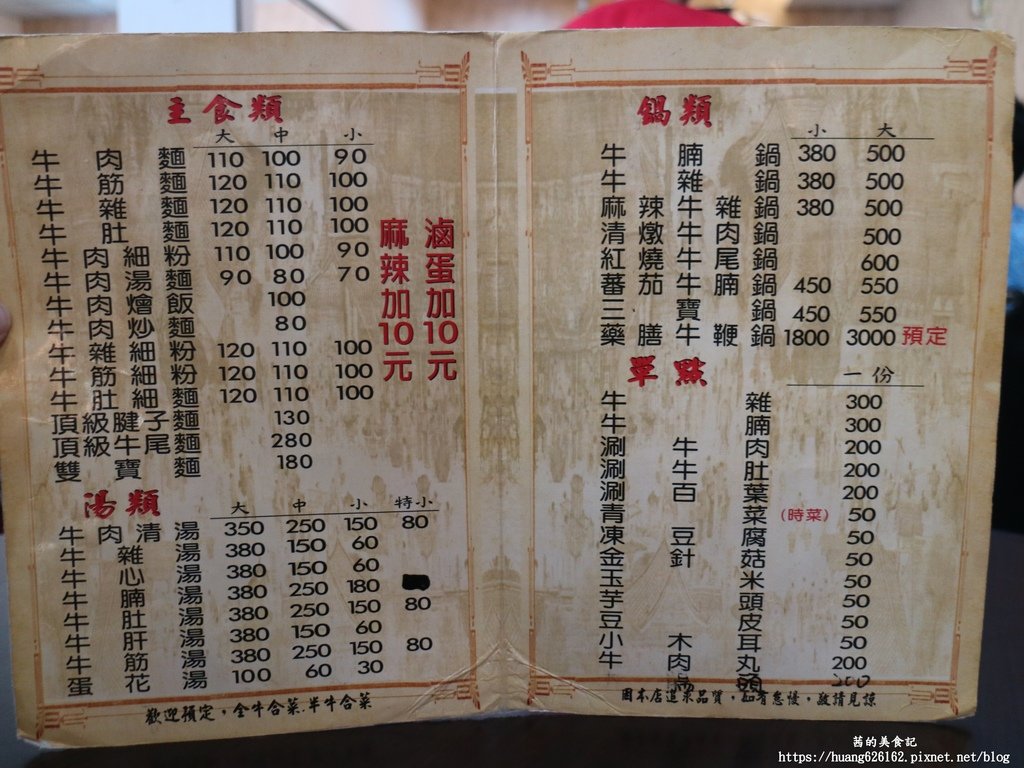 主食類
大 中 小
牛肉麵 110 100 90
牛筋麵 120 110 100
牛雜麵 120 110 100
牛肚麵 120 110 100
牛肉細粉 110 100 90
牛肉湯麵 90 80 70
牛肉燴飯 100
牛肉炒麵 80
牛雜細粉 120 110 100
牛筋細粉 120 110 100
牛肚細麵 120 110 100
頂級腱子麵 130
頂級牛尾麵 280
雙寶麵 180
滷蛋加10元
麻辣加10元
湯類
大 中 小 特小
牛肉清湯 350 250 150 80
牛雜湯 380 150 60
牛心湯 380 150 60
牛腩湯 380 250 180
牛肚湯 380 250 150 80
牛肝湯 380 150 60
牛筋湯 380 250 150 80
蛋花湯 100 60 30
歡迎預定，全牛合菜.半牛合菜
鍋類
小 大
牛腩鍋 380 500
牛雜鍋 380 500
麻辣牛雜鍋 380 500
清燉牛肉鍋 500
紅燒牛尾鍋 600
蕃茄牛腩鍋 450 550
三寶鍋 450 550
藥膳牛鞭鍋 1800 3000 預定
單點
一份
牛雜 300
牛腩 300
涮牛肉 200
涮牛肚 200
涮百葉 200
青菜 (時菜) 50
凍豆腐 50
金針菇 50
玉米 50
芋頭 50
豆皮 50
小木耳 50
牛肉丸 200
因本店追求品質，如有怠慢，敬請見諒
茜的美食記
https://huang626162.pixnet.net/blog